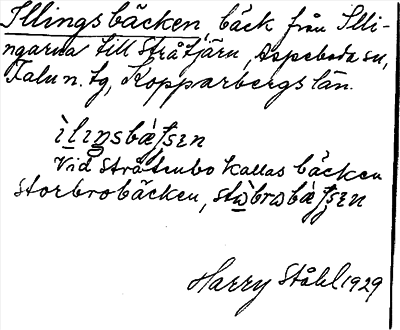 Illingsbäcken, bäck från Illi-
ngarna till Stråtjärn, Aspeboda sn,
Falu n. tg, Kopparbergs län.
ìlıŋsbæʃsɛn
Vid Stråtenbo kallas bäcken
storbrobäcken, stɷ̀brɷbæ̀ʃsɛn
Harry Ståhl 1929